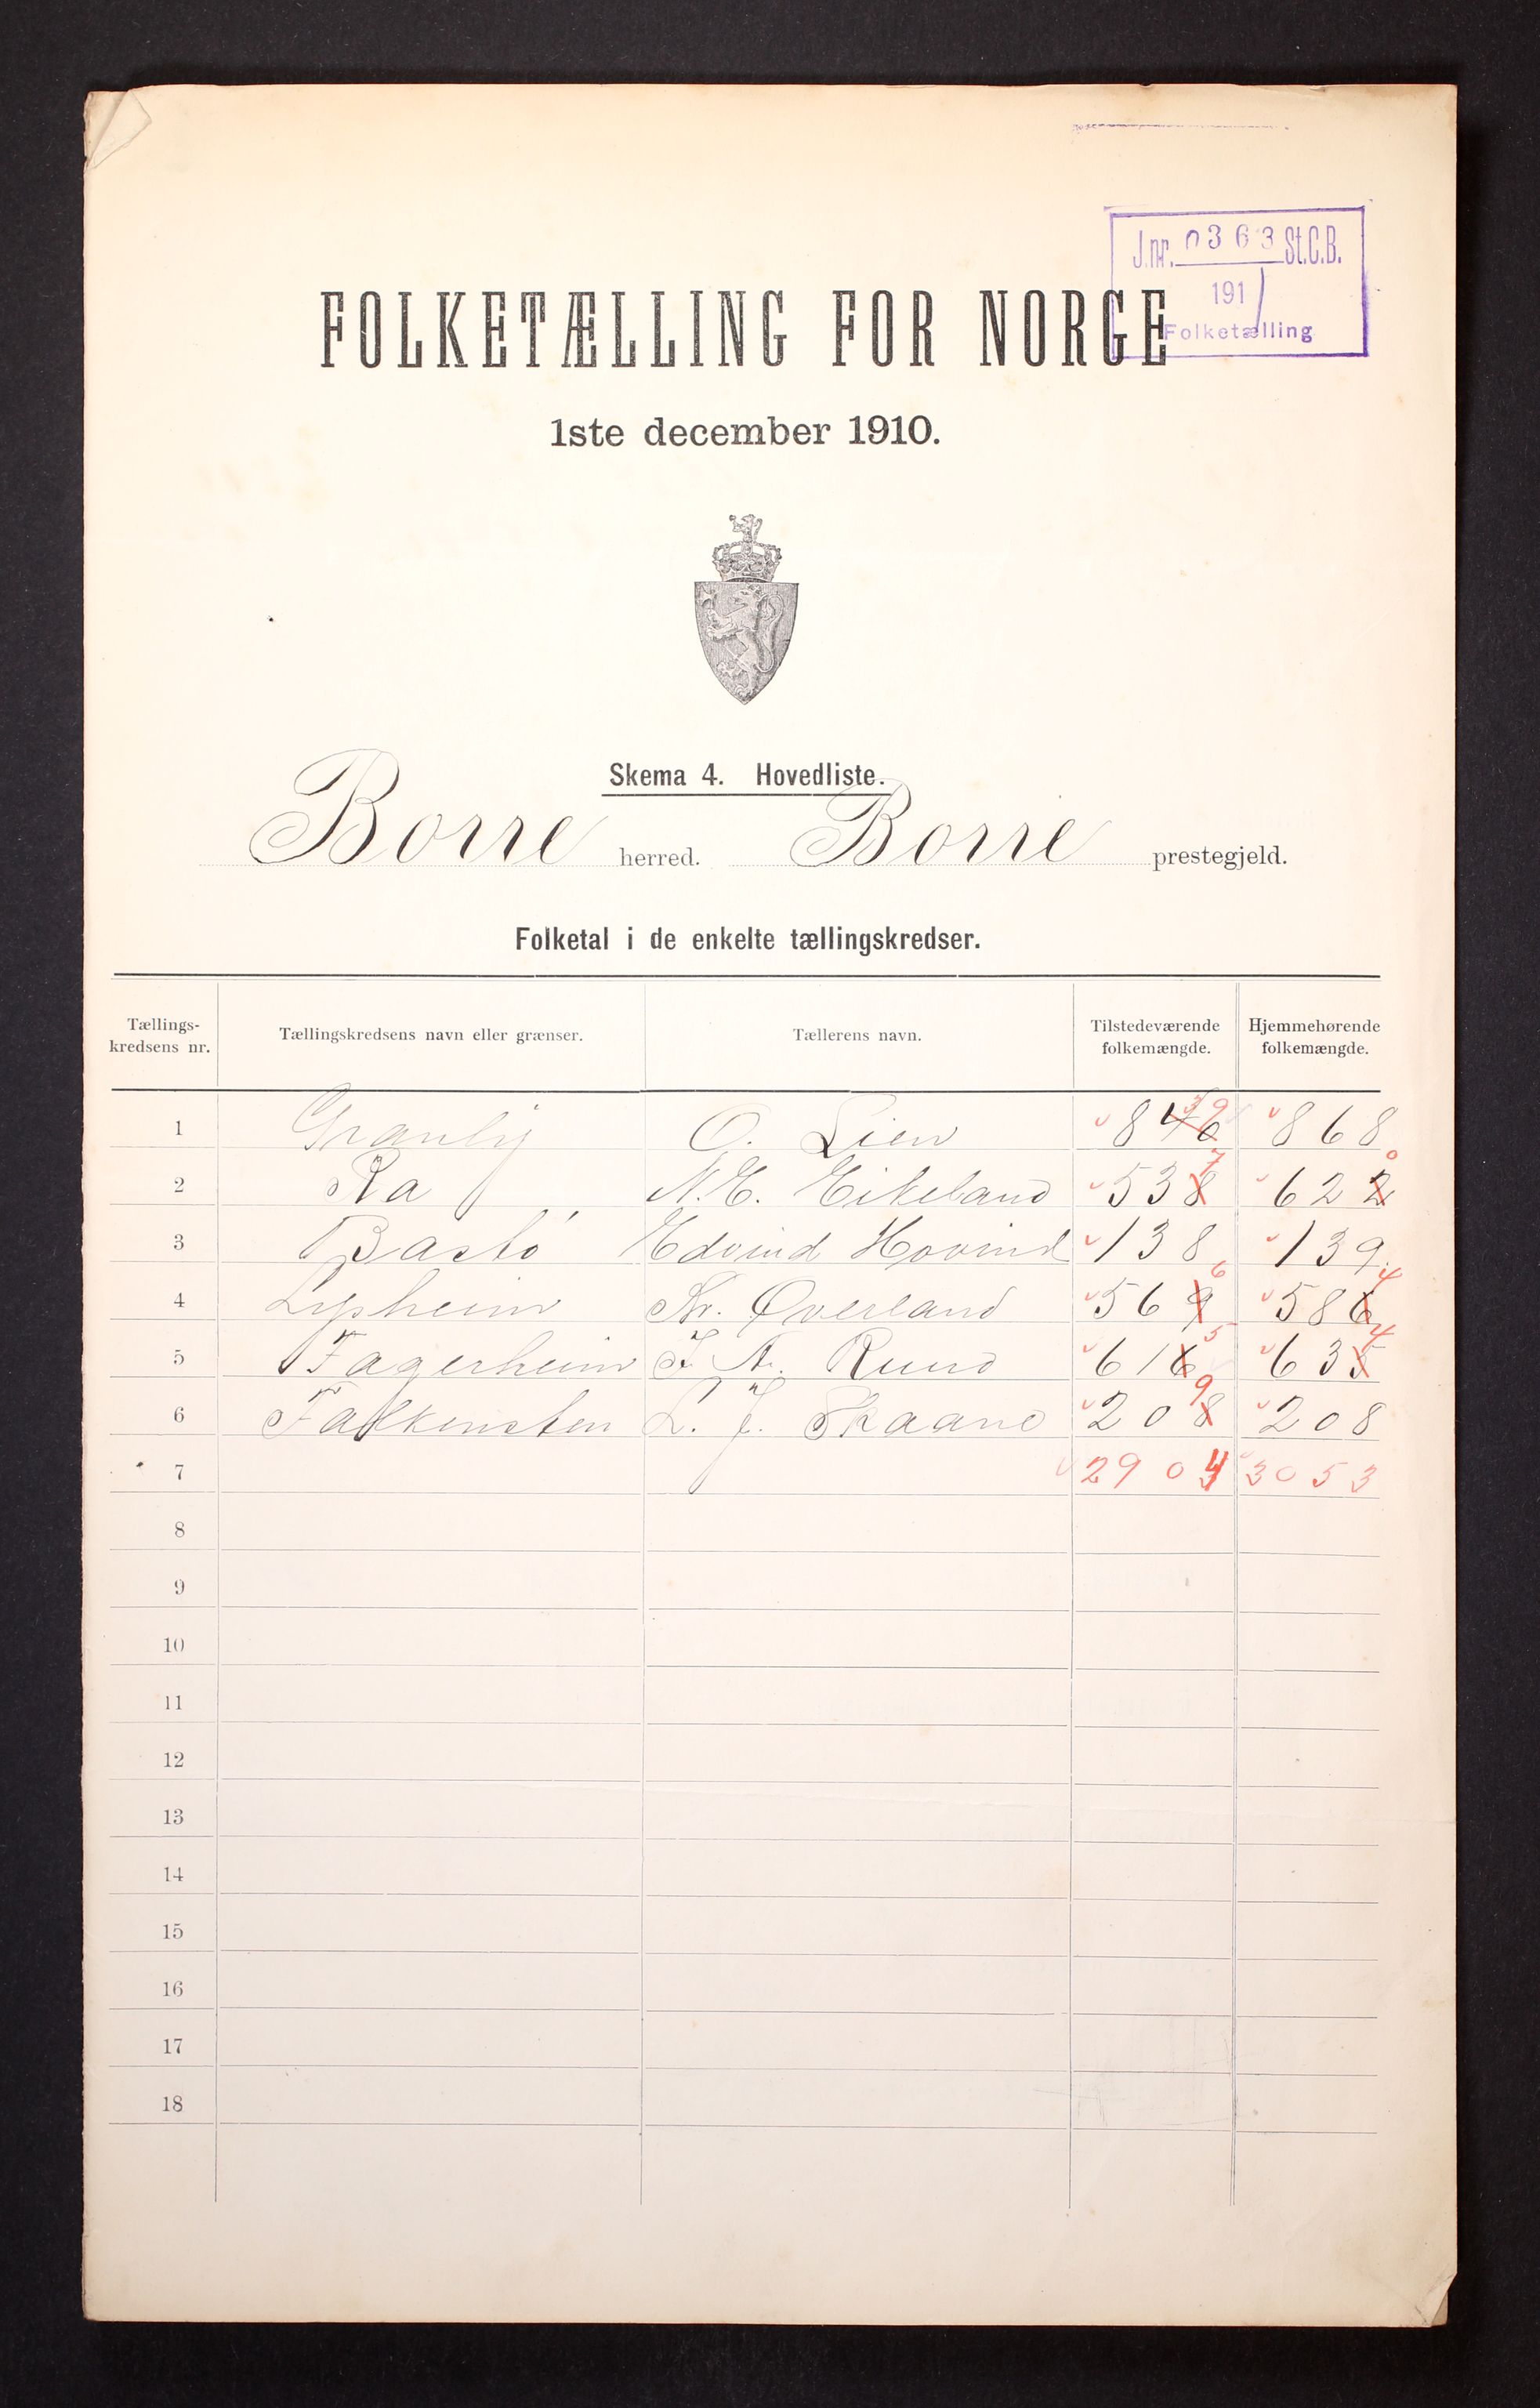 J.nr. 0363 St.C.B.
191/
Folketælling
FOLKETÆLLING FOR NORGE
1ste december 1910.
Skema 4. Hovedliste.
Borre herred. Borre prestegjeld.
Folketal i de enkelte tællingskredser.
Tællings-kredsens nr. Tællingskredsens navn eller grænser. Tællerens navn. Tilstedeværende folkemængde. Hjemmehørende folkemængde.
1 Granly O. Lien 846 39 868
2 Ra N.E. Eikeland 538 7 622 0
3 Bastö Edvind Hovind 138 139
4 Lysheim Kr. Överland 569 6 586 4
5 Fagerheim Ruud 616 5 635 4
6 Falkensten L. J. Skaane 208 9 208
7 2904 3053
8
9
10
11
12
13
14
15
16
17
18